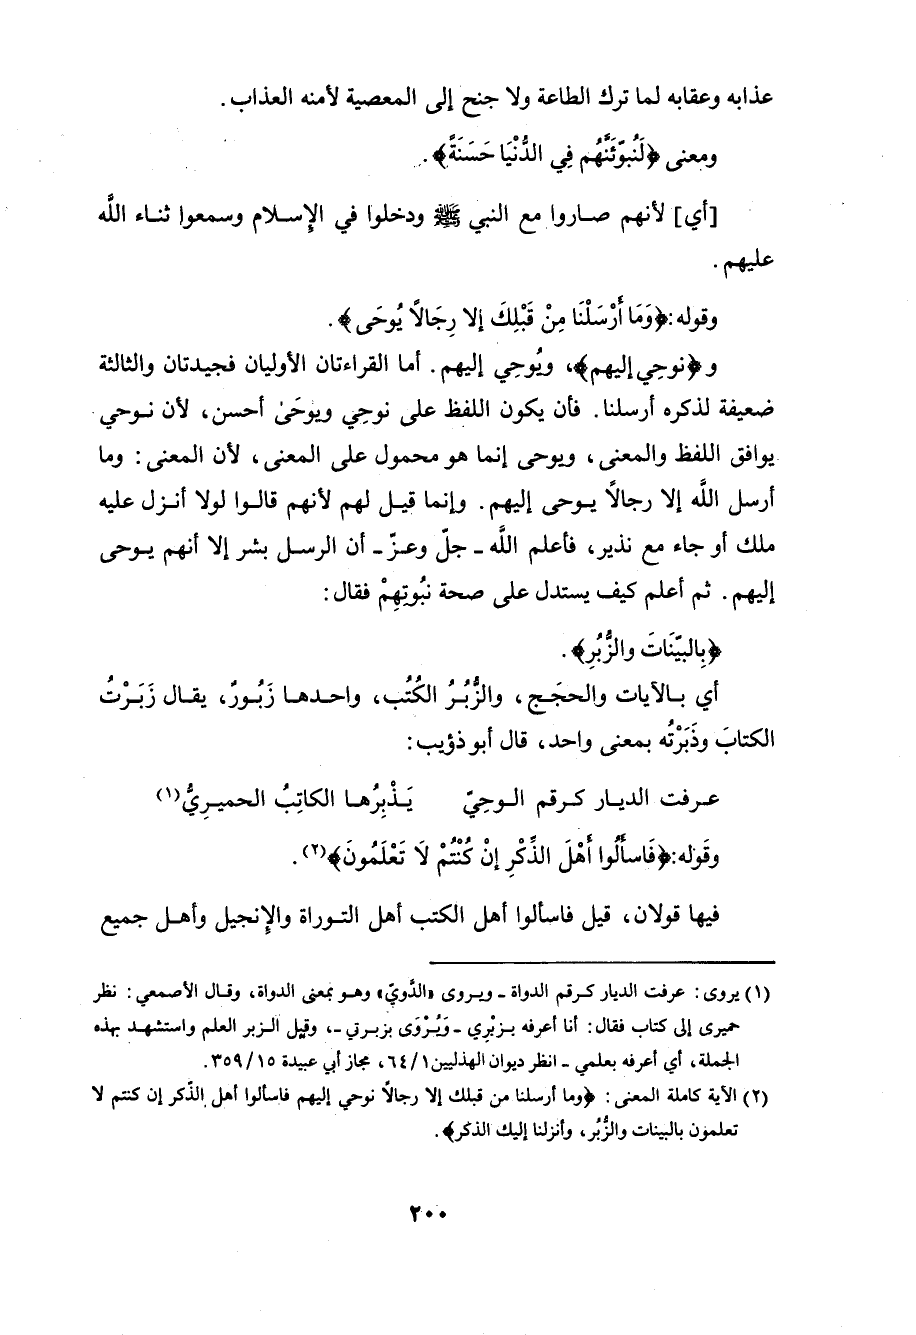 عذابه وعقابه لما ترك الطاعة ولا جنح إلى المعصية لأمنه العذاب.
ومعنى ﴿لَنُبوِّئَنَّهُم فِي الدُّنْيَا حَسَنَةً﴾.
[أي] لأنهم صاروا مع النبي ﷺ ودخلوا في الإسلام وسمعوا ثناء اللَّه
عليهم.
وقوله:﴿وَمَا أَرْسَلْنَا مِنْ قَبْلِكَ إلا رِجَالاً يُوحَى﴾.
و﴿نوحِي إليهم﴾، ويُوحِي إليهم. أما القراءتان الأوليان فجيدتان والثالثة
ضعيفة لذكره أرسلنا. فأن يكون اللفظ على نوحِي ويوحَىٰ أحسن، لأن نوحي
يوافق اللفظ والمعنى، ويوحى إنما هو محمول على المعنى، لأن المعنى: وما
أرسل اللَّه إلا رجالاً يوحى إليهم. وإنما قيل لهم لأنهم قالوا لولا أنزل عليه
ملك أو جاء مع نذير، فأعلم اللَّه - جلّ وعزّ - أن الرسل بشر إلا أنهم يوحى
إليهم. ثم أعلم كيف يستدل على صحة نبُوتِهِمْ فقال:
﴿بِالبيّنَاتَ والزُّبُرِ﴾.
أي بالآيات والحجَج، والزُّبُرُ الكُتُب، واحدها زَبُورٌ، يقال زَبَرْتُ
الكتابَ وذَبَرْتُه بمعنى واحد، قال أبو ذؤيب:
عرفت الديار كرقم الوحِيّ يَذْبِرُها الكاتِبُ الحميرِيُّ(١)
وقَوله:﴿فَاسأَلُوا أَهْلَ الذِّكْرِ إنْ كُنْتُمْ لَا تَعْلَمُونَ﴾(٢).
فيها قولان، قيل فاسألوا أهل الكتب أهل التوراة والإنجيل وأهل جميع
(١) يروى: عرفت الديار كرقم الدواة - ويروى «الدَّويّ» وهو بمعنى الدواة، وقال الأصمعي: نظر
حميرى إلى كتاب فقال: أنا أعرفه بزبْرِي - وَيُرْوَى بزبرتي -، وقيل الزبر العلم واستشهد بهذه
الجملة، أي أعرفه بعلمي - انظر ديوان الهذليين ١/٦٤، مجاز أبي عبيدة ١٥/٣٥٩.
(٢) الآية كاملة المعنى: ﴿وما أرسلنا من قبلك إلا رجالاً نوحي إليهم فاسألوا أهل الذكر إن كنتم لا
تعلمون بالبينات والزُّبُر، وأنزلنا إليك الذكر﴾.
٢٠٠